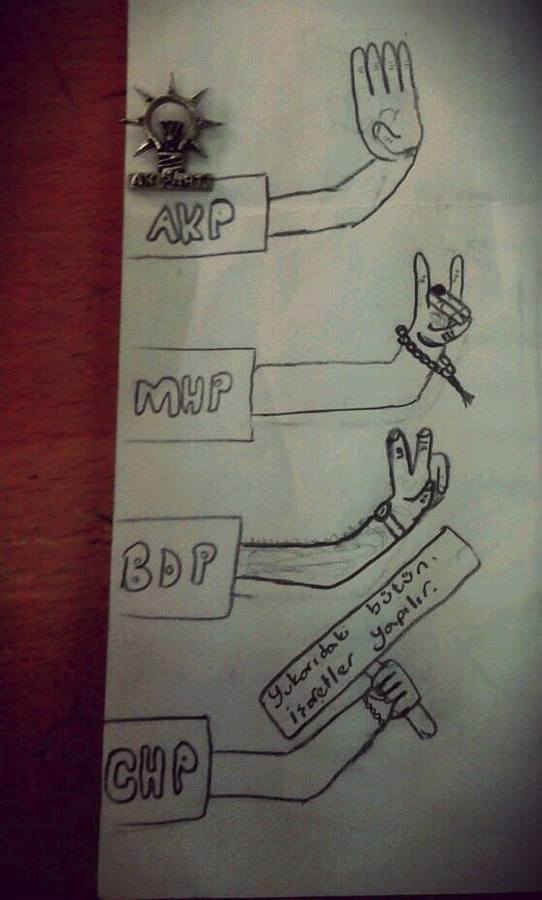 AK PARTİ
AKP
MHP
BDP
Yukarıdaki bütün
işaretler yapılır.
CHP